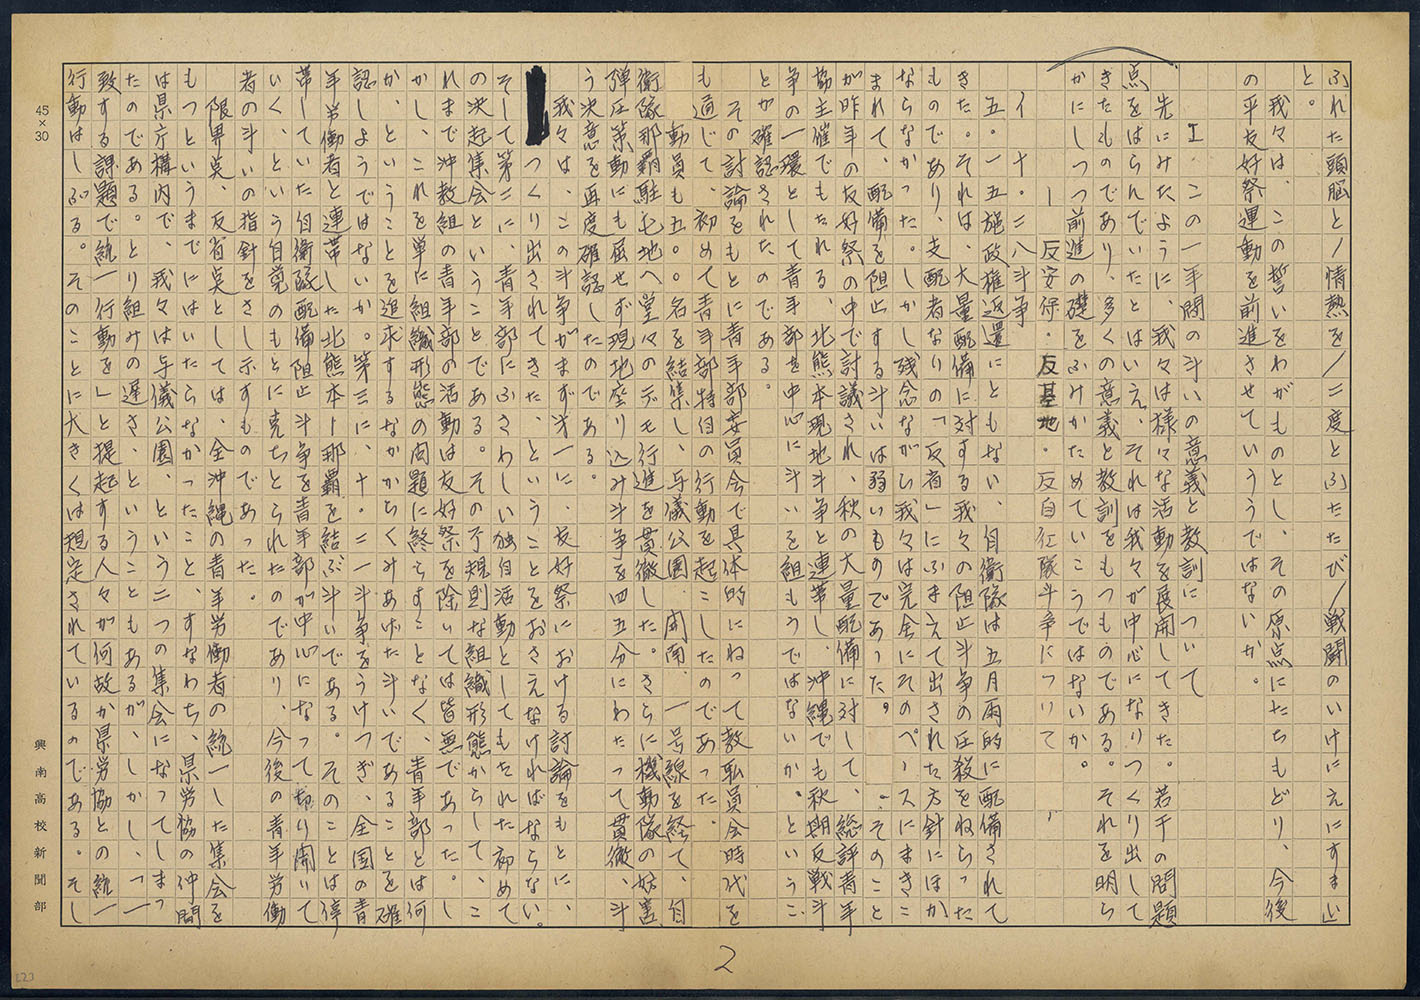 ふれた頭脳と/情熱を//二度とふたたび/戦闘のいけにえにすまい」
と。
我々は、この誓いをわがものとし、その原点にたちもどり、今後
の平友好祭運動を前進させていううではないか。
I. この一年間の斗いの意義と教訓について
先にみたように、我々は様々な活動を展開してきた。若干の問題
点をはらんでいたとはいえ、それは我々が中心になりつくり出して
きたものであり、多くの意義と教訓をもつものである。それを明ら
かにしつつ前進の礎をふみかためていこうではないか。
1 反安保・反基地・反自衛隊斗争について
イ 十・二八斗争
五・一五施政権返還にともない、自衛隊は五月雨的に配備されて
きた。それは、大量配備に対する我々の阻止斗争の圧殺をねらった
ものであり、支配者なりの「反省」にふまえて出された方針にほか
ならなかった。しかし残念ながら我々は完全にそのペースにまきこ
まれて、配備を阻止する斗いは弱いものであった。そのこと
が昨年の友好祭の中で討議され、秋の大量配備に対して、総評青年
協主催でもたれる、北熊本現地斗争と連帯し、沖縄でも秋期反戦斗
争の一環として青年部を中心に斗いを組もうではないか。というこ
とが確認されたのである。
その討論をもとに青年部委員会で具体的にねって教私員会時代を
も通じて、初めて青年部独自の行動を起こしたのであった。
動員も五〇〇名を結集し、与儀公園、開南、一号線を経て、自
衛隊那覇駐屯地へ堂々のデモ行進を貫徹した。さらに機動隊の妨害、
弾圧策動にも屈せず現地座り込み斗争を四五分にわたって貫徹、斗
う決意を再度確認したのである。
我々は、この斗争がまず第一に、友好祭における討論をもとに、
つくり出されてきた、ということをおさえなければならない。
そして第二に、青年部にふさわしい独自活動としてもたれた初めて
の決起集会ということである。その不規則な組織形態からして、こ
れまで沖教組の青年部の活動は友好祭を除いては皆無であった。し
かし、これを単に組織形態の問題に終らすことなく、青年部とは何
か、ということを追求するなかからくみあげた斗いであることを確
認しようではないか。第三に、十・二一斗争をうけつぎ、全国の青
年労働者と連帯した北熊本ー那覇を結ぶ斗いである。そのことは停
帯していた自衛隊配備阻止斗争を青年部が中心になって切り開いて
いく、という自覚のもとに克ちとられたのであり、今後の青年労働
者の斗いの指針をさし示すものであった。
限界点、反省点としては、全沖縄の青年労働者の統一した集会を
もつというまでにはいたらなかったこと、すなわち、県労協の仲間
は県庁構内で、我々は与儀公園、という二つの集会になってしまっ
たのである。とり組みの遅さ、ということもあるが、しかし、「一
致する課題で統一行動を」と提起する人々が何故か県労協との統一
行動はしぶる。そのことに大きくは規定されているのである。そし
2
45×30
興南高校新聞部